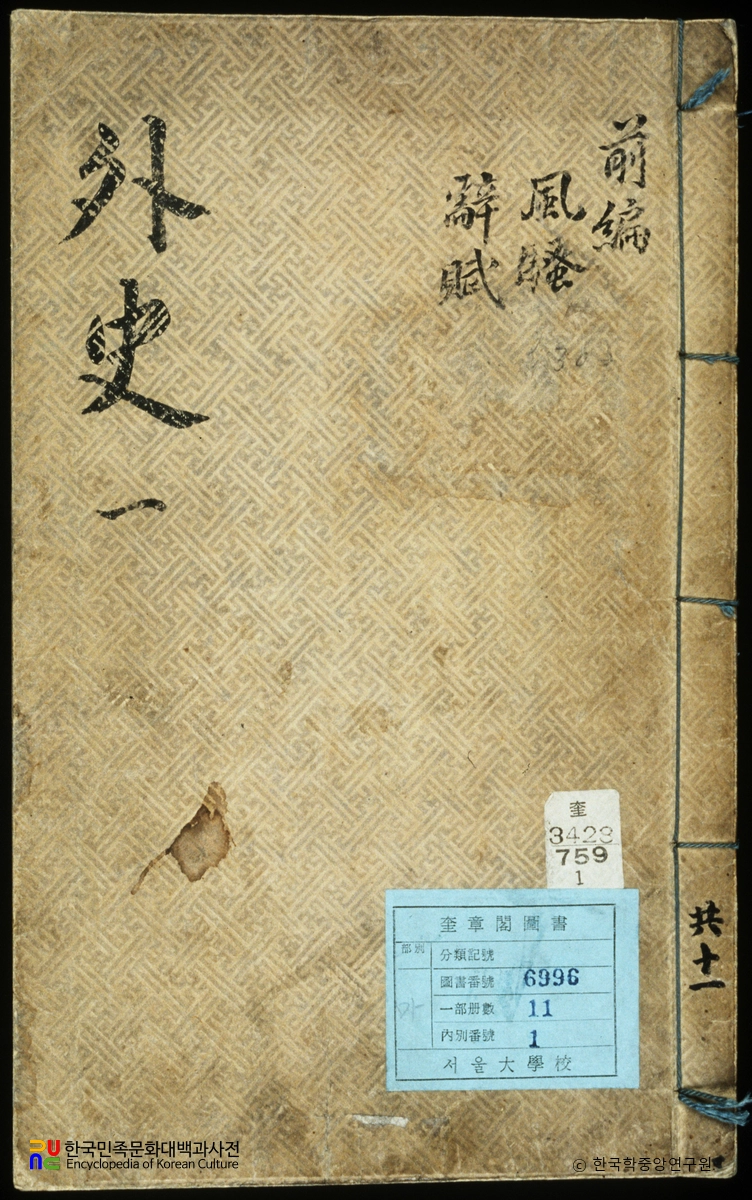 前編
風騷
辭賦
外史
一
奎
3428
759
1
奎章閣圖書
部別
分類記號
圖書番號 6996
一部册數 11
內別番號 1
서울大學校
共十一
한국민족문화대백과사전
Encyclopedia of Korean Culture
© 한국학중앙연구원